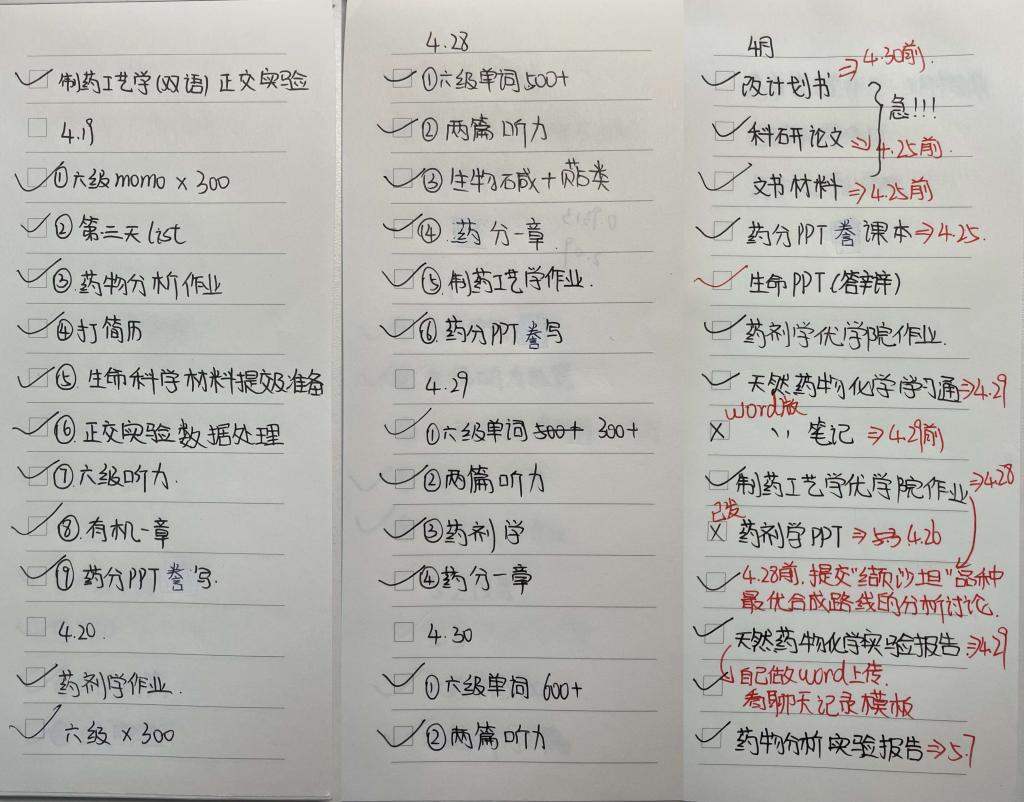 制药工艺学(双语)正交实验
4.19
①六级momo×300
②第三天list
③药物分析作业
④打简历
⑤生命科学材料提交及准备
⑥正交实验数据处理
⑦六级听力.
⑧有机一章
⑨药分PPT誊写.
4.20.
药剂学作业.
六级×300
4.28
①六级单词500+
②两篇听力
③生物碱+萜类
④.药分一章.
⑤.制药工艺学作业.
⑥.药分PPT誊写
4.29
①六级单词500+ 300+
②两篇听力
③药剂学
④药分一章
4.30
①六级单词600+
②两篇听力
4月
改计划书⇒4.30前.
急!!!
科研论文⇒4.25前.
文书材料⇒4.25前
药分PPT誊课本⇒4.25.
生命PPT(答辩)
药剂学优学院作业.
天然药物化学学习通⇒4.29
word版
〃 笔记⇒4.29前
制药工艺学优学院作业⇒4.28
已发
药剂学PPT⇒5.3 4.26
4.28前.提交"缬沙坦"品种
最优合成路线的分析讨论.
天然药物化学实验报告⇒4.29
自己做word上传.
看聊天记录模板
药物分析实验报告⇒5.7